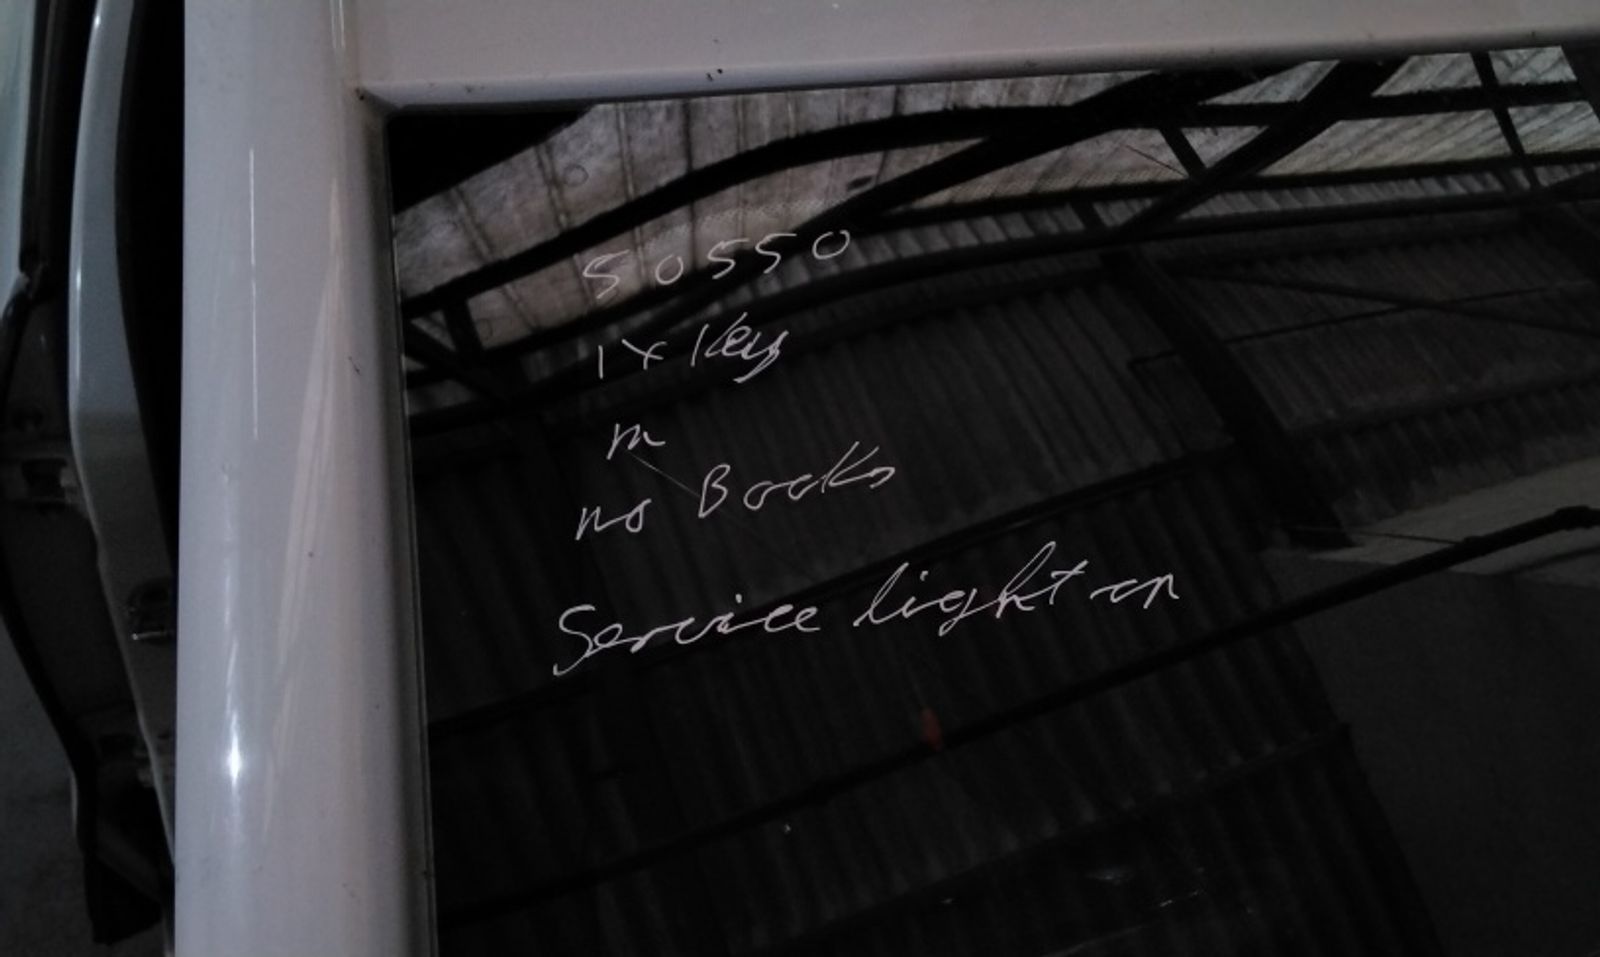 50550
1 x Key
m
no Books
Service light on